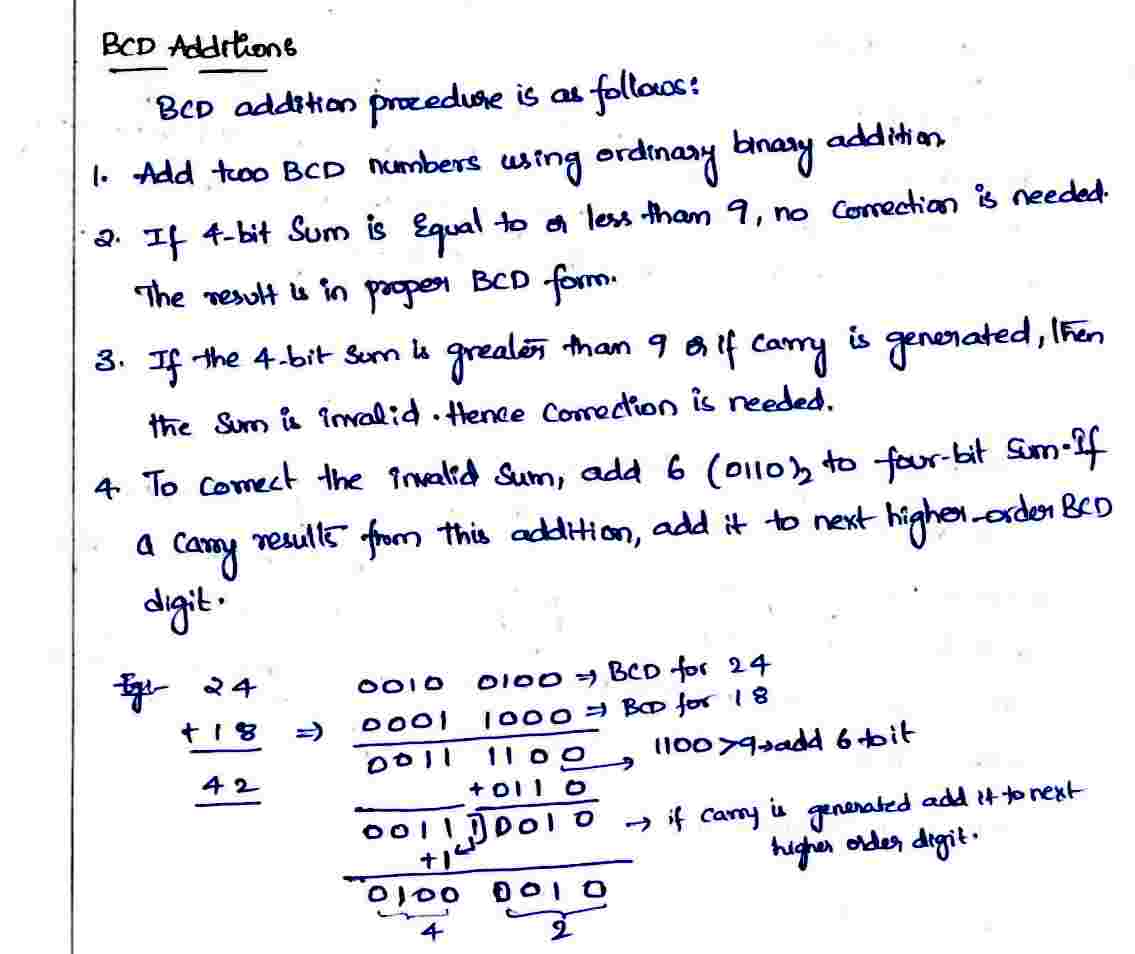 BCD Additions
BCD addition procedure is as follows:
1. Add two BCD numbers using ordinary binary addition.
2. If 4-bit Sum is Equal to or less than 9, no correction is needed.
The result is in proper BCD form.
3. If the 4-bit sum is greater than 9 or if carry is generated, then
the Sum is invalid. Hence Correction is needed.
4 To correct the invalid Sum, add 6 (0110)₂ to four-bit sum. If
a carry results from this addition, add it to next higher-order BCD
digit.
Eg:- 24 0010 0100 ⇒ BCD for 24
+18 ⇒ 0001 1000 ⇒ BCD for 18
0011 1100 → 1100>9→add 6 to it
42 +0110
0011 1 0010 → if carry is generated add it to next
+1 higher order digit.
0100 0010
4 2